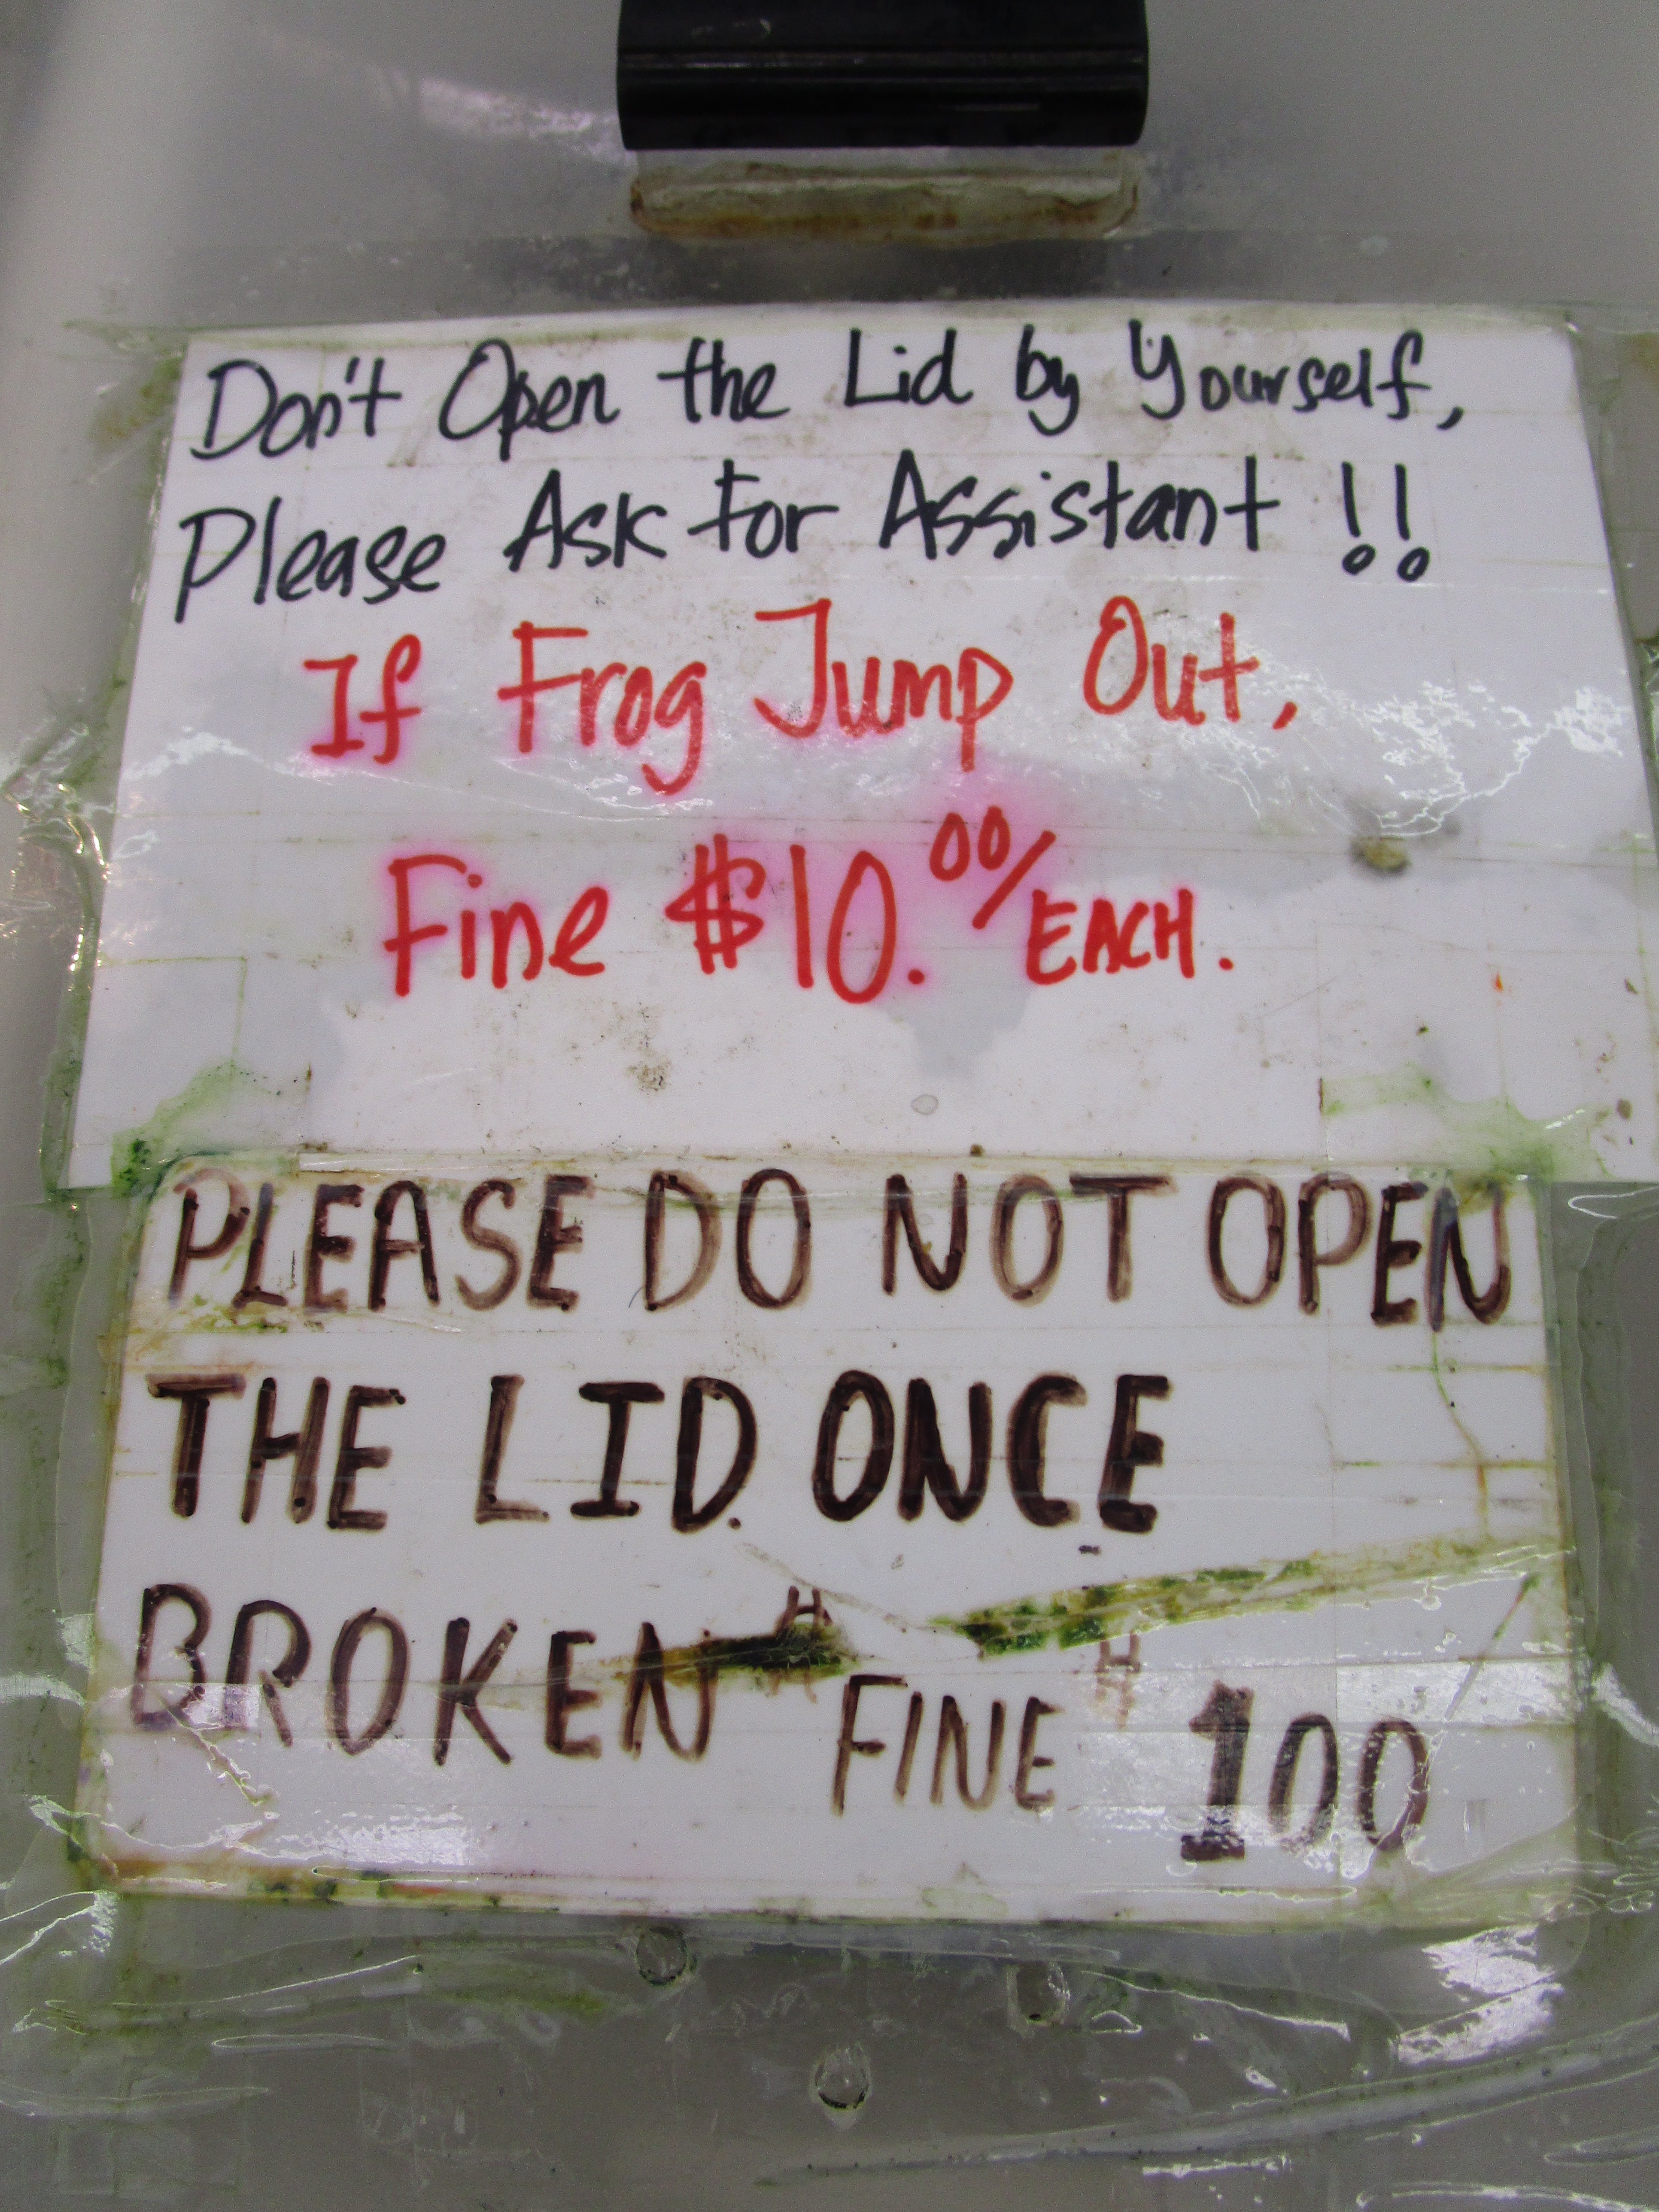 Don't Open the Lid by Yourself,
Please Ask For Assistant !!
If Frog Jump Out,
Fine $10.00/EACH.
PLEASE DO NOT OPEN
THE LID. ONCE
BROKEN FINE 100